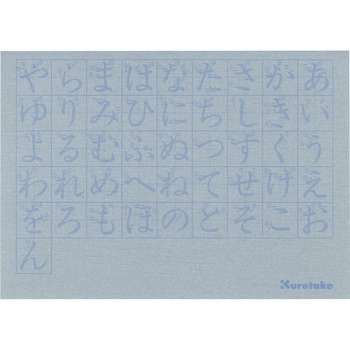 あいうえお
かきくけこ
さしすせそ
たちつてと
なにぬねの
はひふへほ
まみむめも
らりるれろ
やゆよわをん
Kuretake